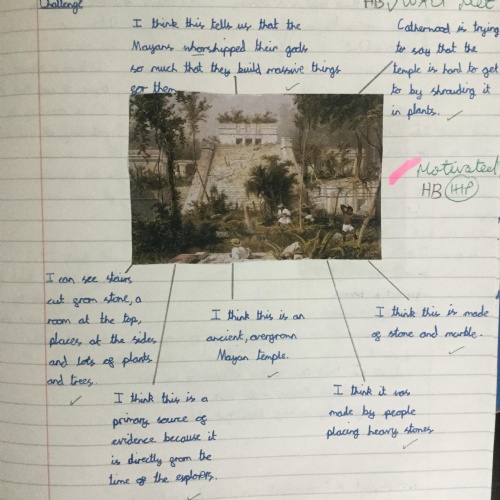 Challenge
I think this tells us that the
Mayans whorshipped their gods
so much that they build massive things
for them.
Catherwood is trying
to say that the
temple is hard to get
to by shrouding it
in plants.
Motivated
HB HP
I can see stairs
cut from stone, a
room at the top,
places at the sides
and lots of plants
and trees.
I think this is an
ancient, overgrown
Mayan temple.
I think this is made
of stone and marble.
I think this is a
primary source of
evidence because it
is directly from the
time of the explorers.
I think it was
made by people
placing heavy stones